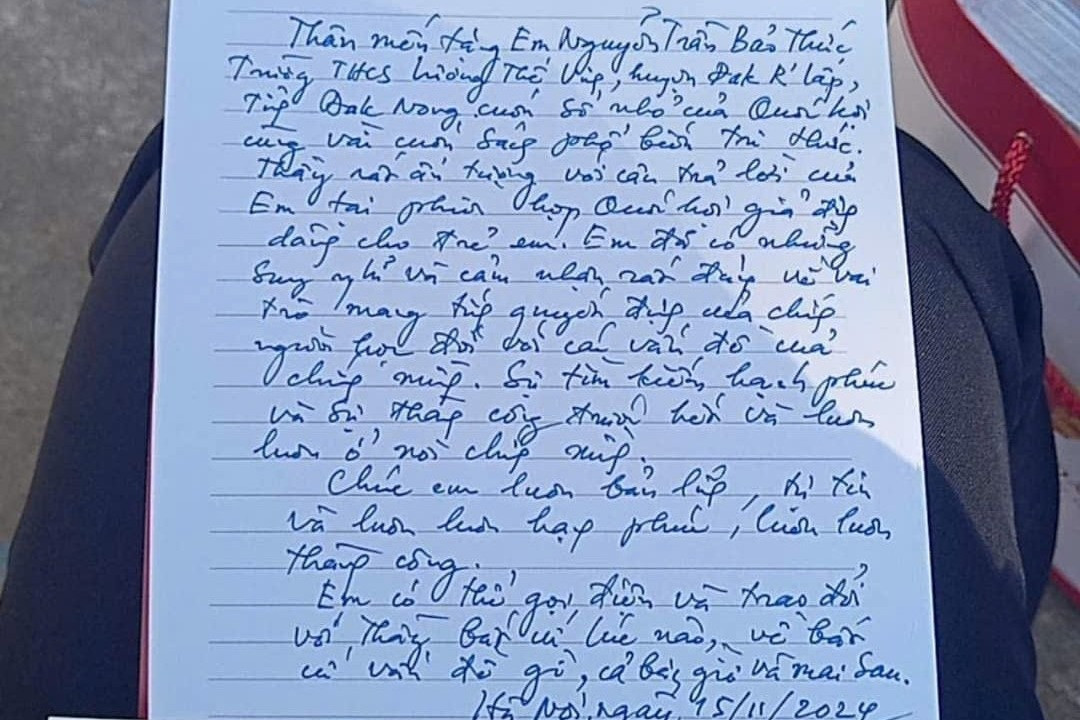 Thân mến tặng Em Nguyễn Trần Bảo Thức
Trường THCS Lương Thế Vinh, huyện Đak R'lấp,
Tỉnh Đak Nong cuốn sổ nhỏ của Quốc hội
cùng vài cuốn sách phổ biến tri thức.
Thầy rất ấn tượng với câu trả lời của
Em tại phiên họp Quốc hội giả định
dành cho trẻ em. Em đã có những
suy nghĩ và cảm nhận rất đúng về vai
trò mang tính quyết định của chính
người học đối với các vấn đề của
chính mình. Sự tìm kiếm hạnh phúc
và sự thành công trước hết và luôn
luôn ở nơi chính mình.
Chúc em luôn bản lĩnh, tự tin
và luôn luôn hạnh phúc, luôn luôn
thành công.
Em có thể gọi điện và trao đổi
với Thầy bất cứ lúc nào, về bất
cứ vấn đề gì, cả bây giờ và mai sau.
Hà Nội, ngày 15/11/2024